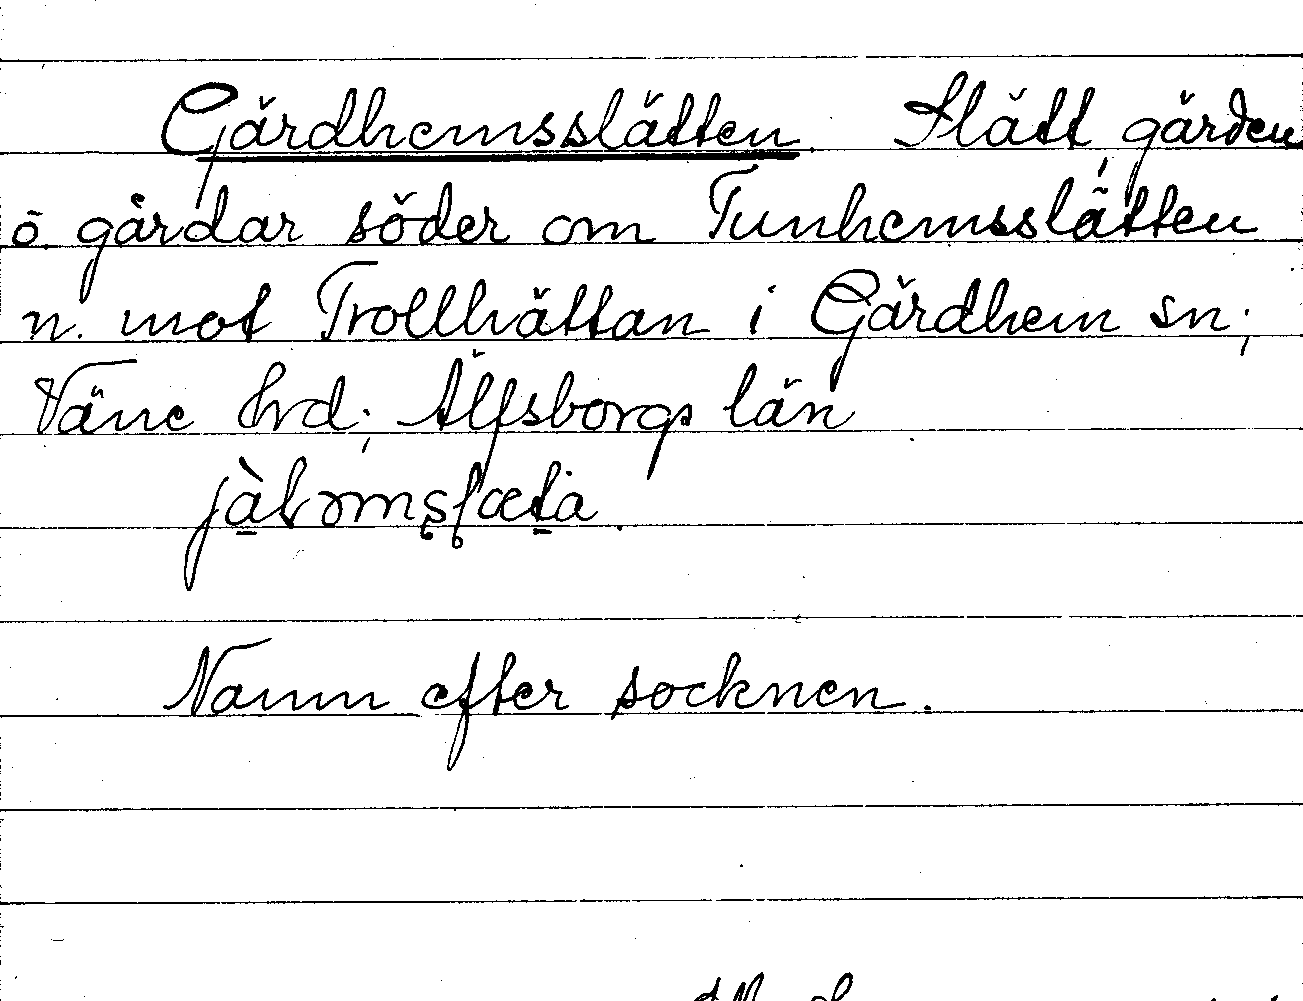 Gärdhemsslätten. Slätt, gärden
o. gårdar söder om Tunhemsslätten
n. mot Trollhättan i Gärdhem sn;
Väne hrd; Älfsborgs län
Namn efter socknen.